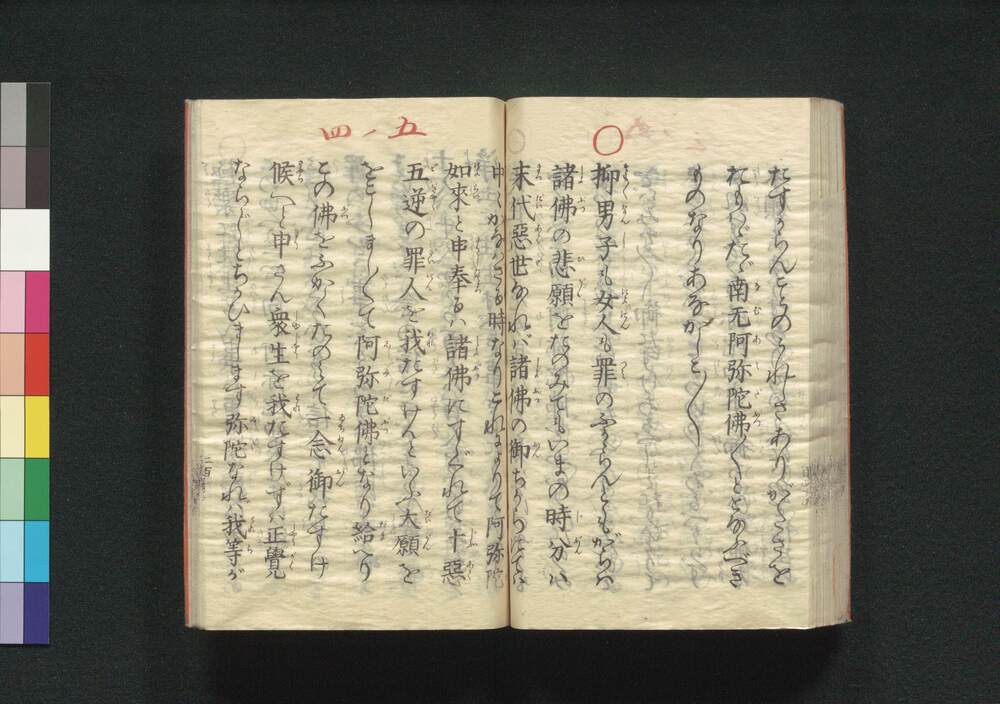 たすからんことのうれしさありがたさを
おもはゞたゞ南无阿弥陀佛〱ととなふべき
ものなりあなかしこ〱
抑男子も女人も罪のふかゝらんともがらは
諸佛の悲願をたのみてもいまの時分は
末代悪世なれば諸佛の御ちからにては
中〱かなはざる時なりこれによりて阿弥陀
五ノ四
如來と申奉るは諸佛にすぐれて十惡
五逆の罪人を我たすけんといふ大願を
をこしまし〱て阿弥陀佛となり給へり
この佛をふかくたのみて一念御たすけ
候へと申さん衆生を我たすけずは正覺
ならじとちかひまします弥陀なれば我等が